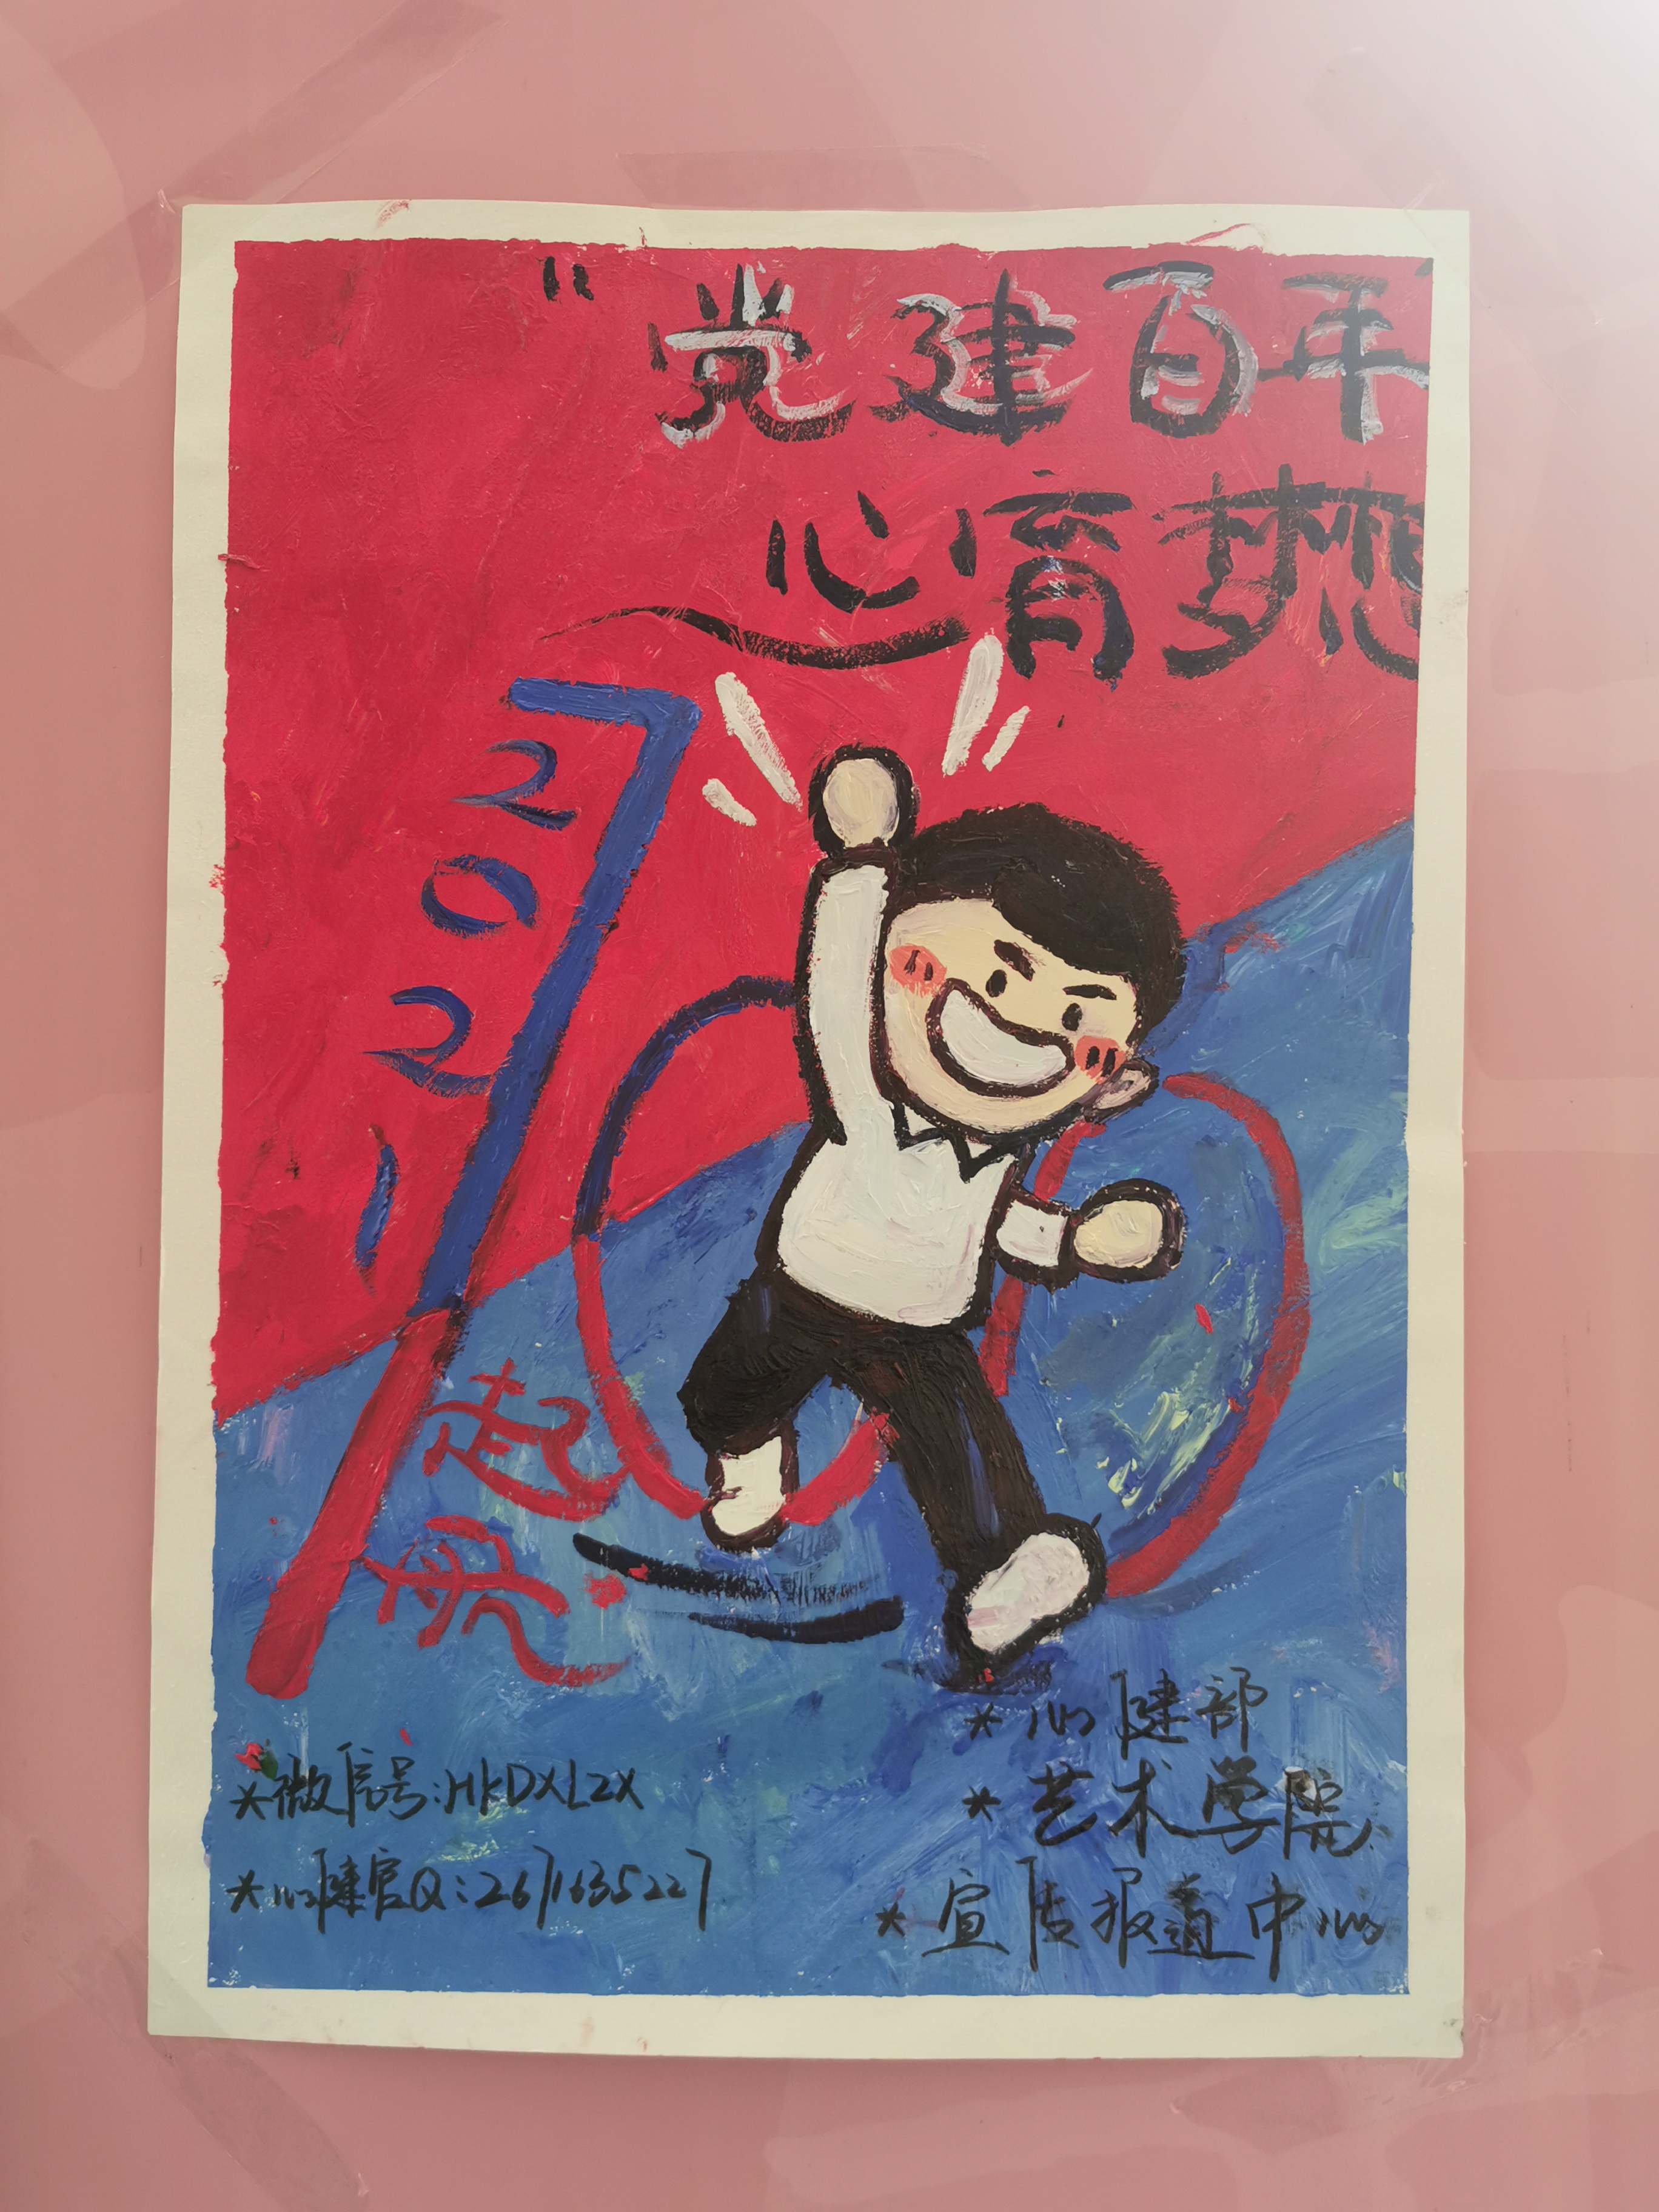 "党建百年
心育梦想
2021
100
起航
*心健部
*微信号:HKDXLZX
*艺术学院
*心健官Q:2671635227
*宣传报道中心